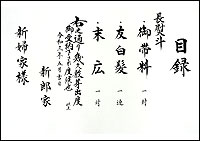 目録
長熨斗
一、御帯料 一封
一、友白髪 一連
一、末広 一対
右之通り幾久敷芽出度
御受納下され度候也 以上
令和三年五月吉日
新郎家
新婦家様